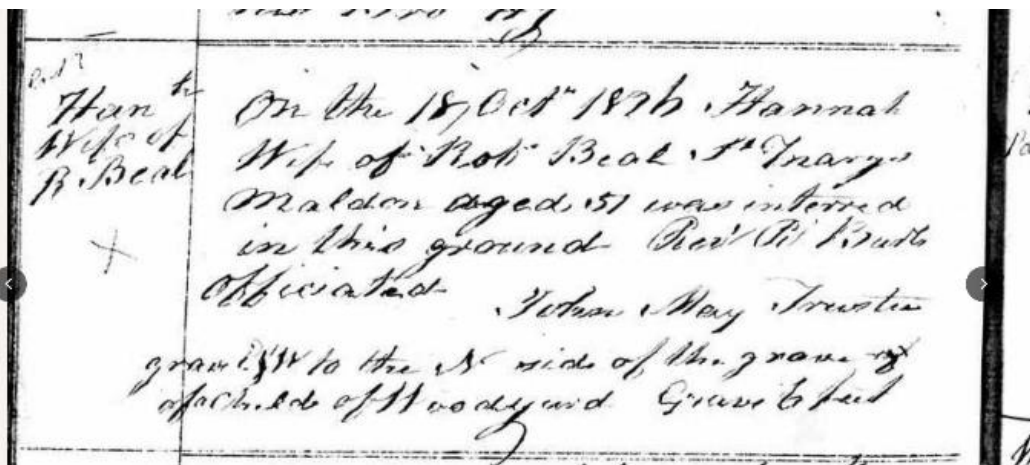 Han^h
Wife of
R. Beal
On the 18 Oct^r 1826 Hannah
Wife of Rob^t Beal S^t Marys
Maldon aged 51 was interred
in this ground Rev^d R Burls
officiated
John May Trustee
grave to the N side of the grave
of a Child of Woodyard Grave 6 feet